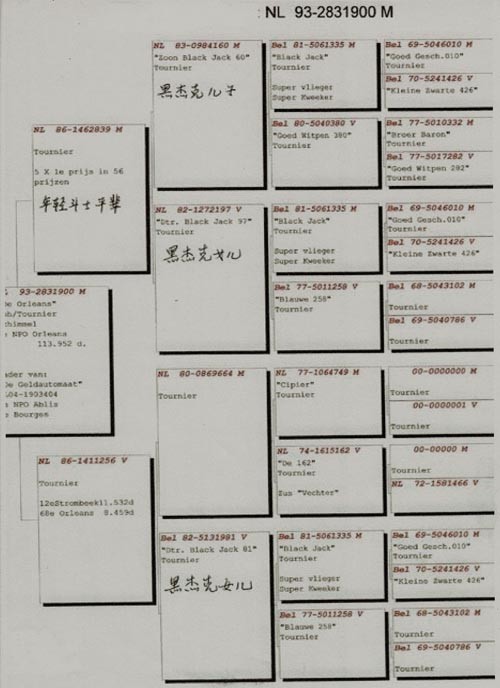 : NL 93-2831900 M
NL 83-0984160 M
"Zoon Black Jack 60"
Tournier
黑杰克儿子
Bel 81-5061335 M
"Black Jack"
Tournier
Super vlieger
Super Kweeker
Bel 69-5046010 M
"Goed Gesch.010"
Tournier
Bel 70-5241426 V
"Kleine Zwarte 426"
Bel 80-5040380 V
"Goed Witpen 380"
Tournier
Bel 77-5010332 M
"Broer Baron"
Tournier
Bel 77-5017282 V
"Goed Witpen 282"
Tournier
NL 86-1462839 M
Tournier
5 X 1e prijs in 56
prijzen
年轻斗士平辈
NL 82-1272197 V
"Dtr. Black Jack 97"
Tournier
黑杰克女儿
Bel 81-5061335 M
"Black Jack"
Tournier
Super vlieger
Super Kweeker
Bel 69-5046010 M
"Goed Gesch.010"
Tournier
Bel 70-5241426 V
"Kleine Zwarte 426"
Bel 77-5011258 V
"Blauwe 258"
Tournier
Bel 68-5043102 M
Tournier
Bel 69-5040786 V
Tournier
93-2831900 M
De Orleans"
ob/Tournier
chimmel
NPO Orleans
113.952 d.
ader van:
De Geldautomaat"
L04-1903404
NPO Ablis
Bourges
NL 80-0869664 M
Tournier
NL 77-1064749 M
"Cipier"
Tournier
00-0000000 M
Tournier
00-0000001 V
Tournier
NL 74-1615162 V
"De 162"
Tournier
Zus "Vechter"
00-00000 M
Tournier
NL 72-1581466 V
Tournier
NL 86-1411256 V
Tournier
12eStrombeek11.532d
68e Orleans 8.459d
Bel 82-5131981 V
"Dtr. Black Jack 81"
Tournier
黑杰克女儿
Bel 81-5061335 M
"Black Jack"
Tournier
Super vlieger
Super Kweeker
Bel 69-5046010 M
"Goed Gesch.010"
Tournier
Bel 70-5241426 V
"Kleine Zwarte 426"
Bel 77-5011258 V
"Blauwe 258"
Tournier
Bel 68-5043102 M
Tournier
Bel 69-5040786 V
Tournier